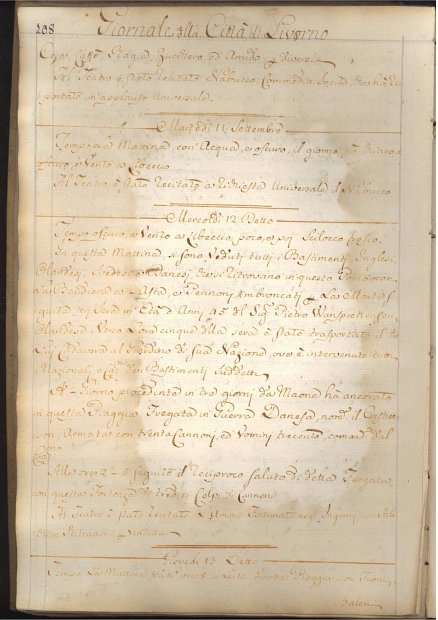 108
Giornale della Città di Livorno
Zucchero, ed Amido
Il Teatro è stato recitato Nabucco Commedia
portato in applauso Universale.
Martedì 11 Settembre
Tempo la Mattina con Acqua, e oscuro, il giorno
oscuro, e Vento a Libeccio
Al Teatro è stato Recitato a Richiesta Universale il Nabucco
Mercoldì 12 Detto
Tempo oscuro, e Vento a Libeccio, poco, e poi Scilocco fresco.
In questa Mattina, si sono Veduti tutti i Bastimenti Inglesi
Olandesi, Svedesi e Danesi che si ritrovano in questo Porto con
La Bandiera a mezz'Asta, e Pennoni Imbroncati La Morte
seguita jeri Sera in Età d'Anni 45 del Sig. Pietro
Olandese, Verso L'ora cinque della sera è stato trasportato il di
Lui Cadavere al Giardino di sua Nazione, ove è intervenuto
Nazionali, e Bastimenti Suddetti
A Giorno procedente in tre giorni da Maone ha ancorato
in questa Spiaggia Fregata in Guerra Danesa, nom.
Armata con trenta Cannoni, ed Uomini trecento, comand. dal
Alle ore 2 ½ è seguito il Reciproco saluto di detta Fregata
con questa Fortezza di tredici Colpi di Cannone
Al Teatro è stato recitato L'Amor Fortunato negl'Inganni
e Vendetta
Giovedì 13 Detto
Tempo La Mattina Pioggia, con Tuoni,
Balen